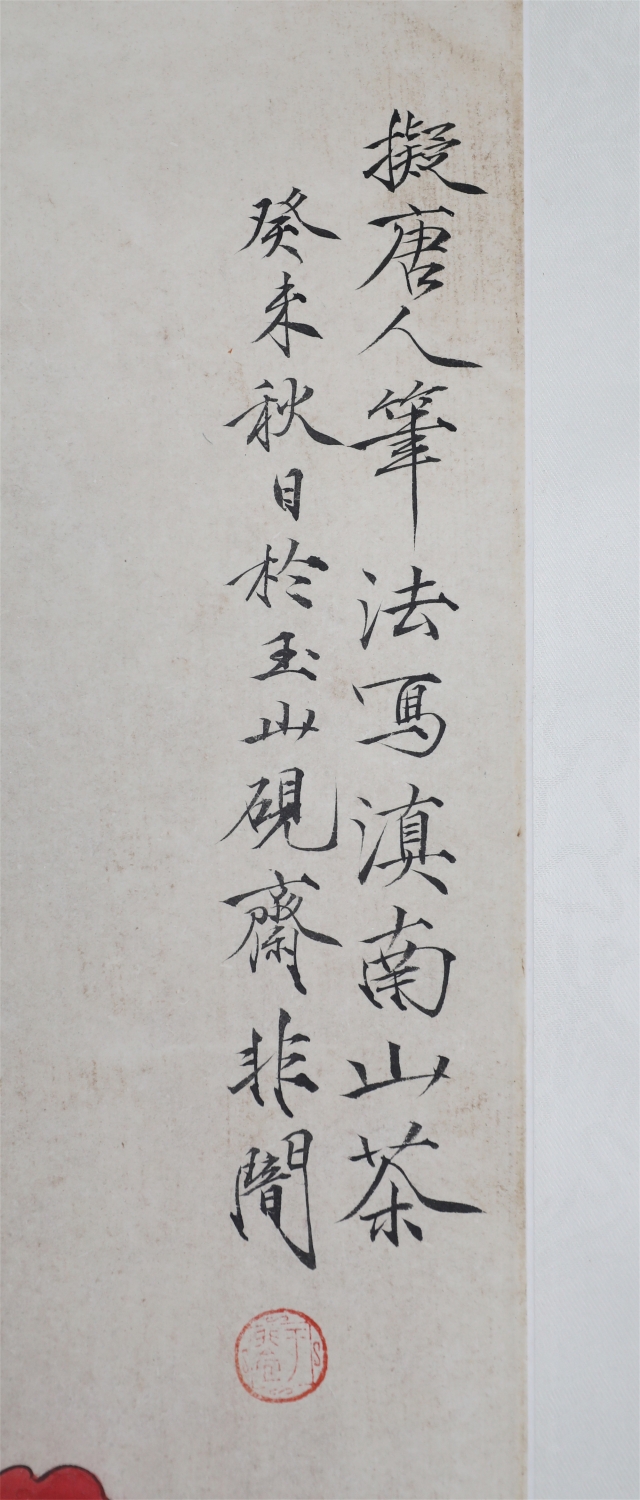 擬唐人筆法寫滇南山茶
癸未秋日於玉山硯齋非闇